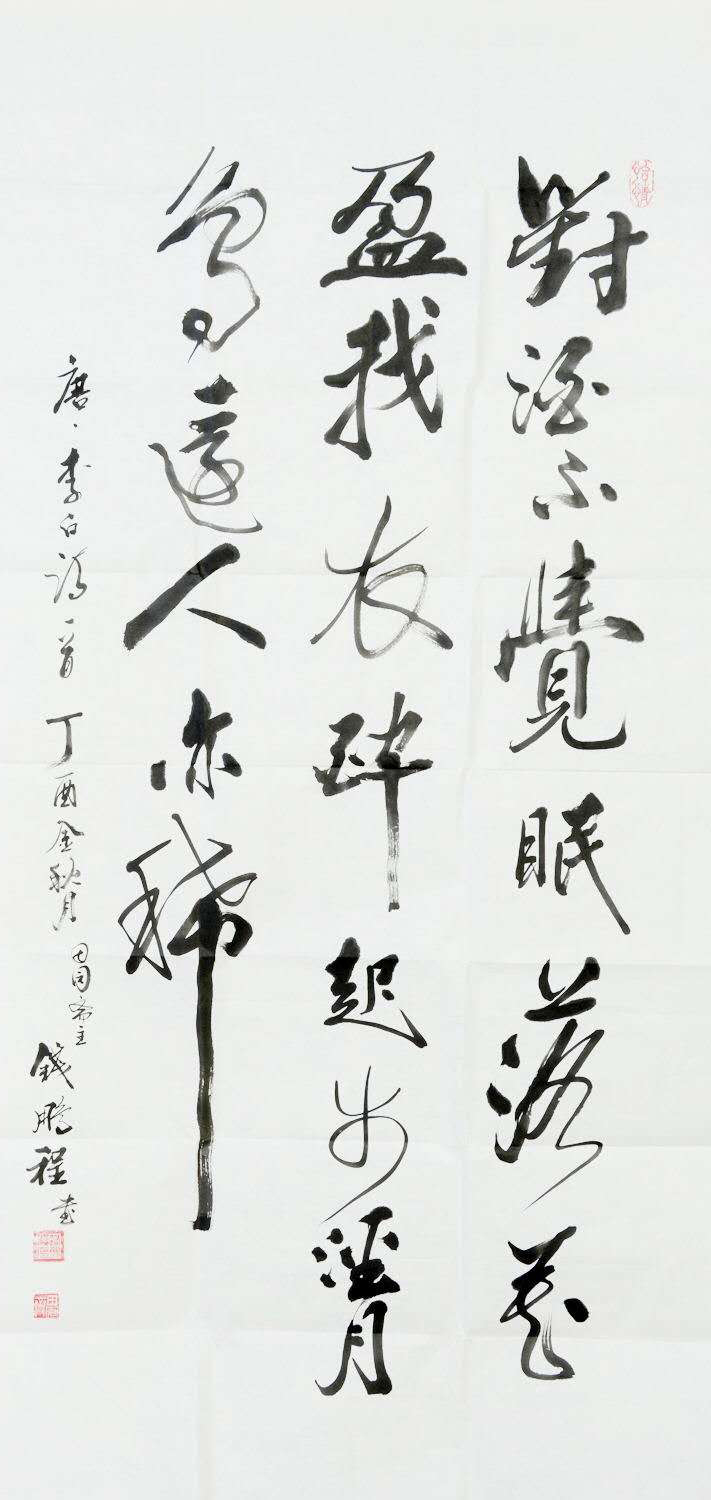 對酒不覺眠落花
盈我衣醉起步溪月
鳥還人亦稀
唐、李白詩一首 丁酉金秋月 斋主 錢鵬程書